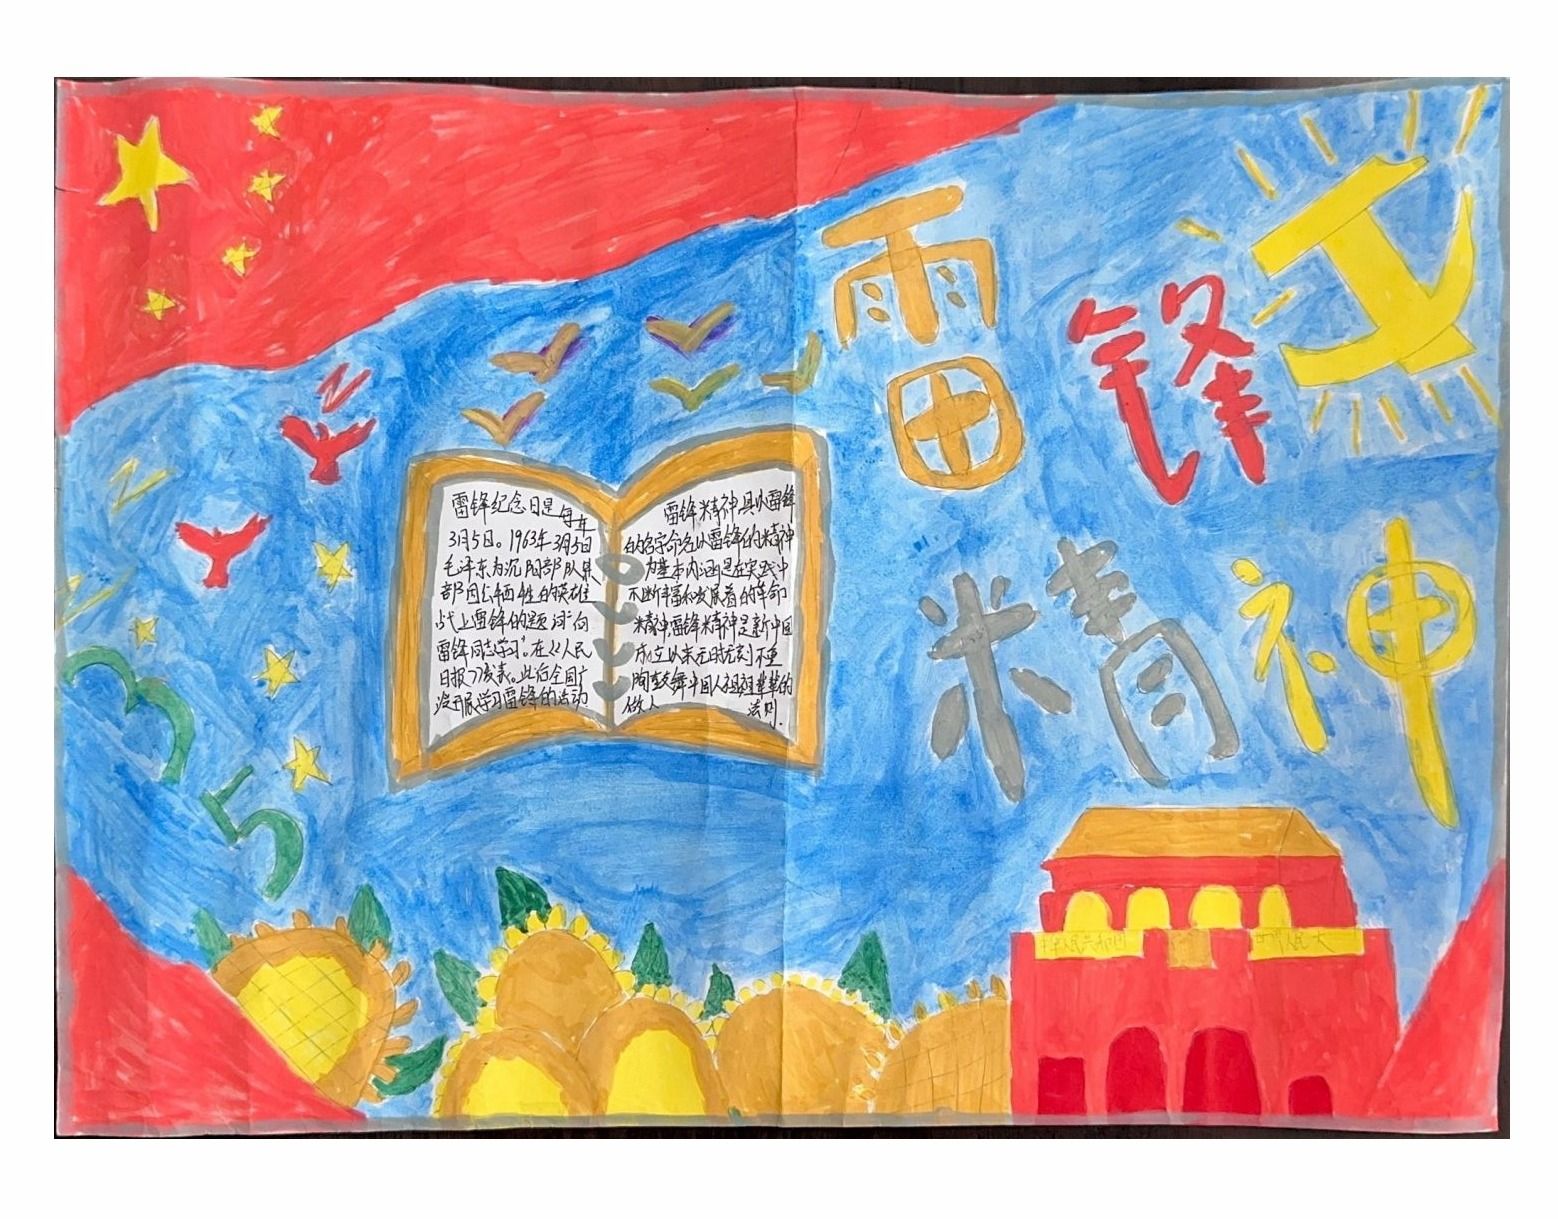 雷锋
精神
3
5
雷锋纪念日是每年
3月5日。1963年3月5日
毛泽东为沈阳部队某
部因公牺牲的英雄
战士雷锋的题词“向
雷锋同志学习”。在《人民
日报》发表。此后全国广
泛开展学习雷锋的活动
雷锋精神,是以雷锋
的名字命名以雷锋的精神
为基本内涵是在实践中
不断丰富和发展着的革命
精神,雷锋精神是新中国
成立以来无时无刻不在
陶鼓舞中国人
做人 法则.